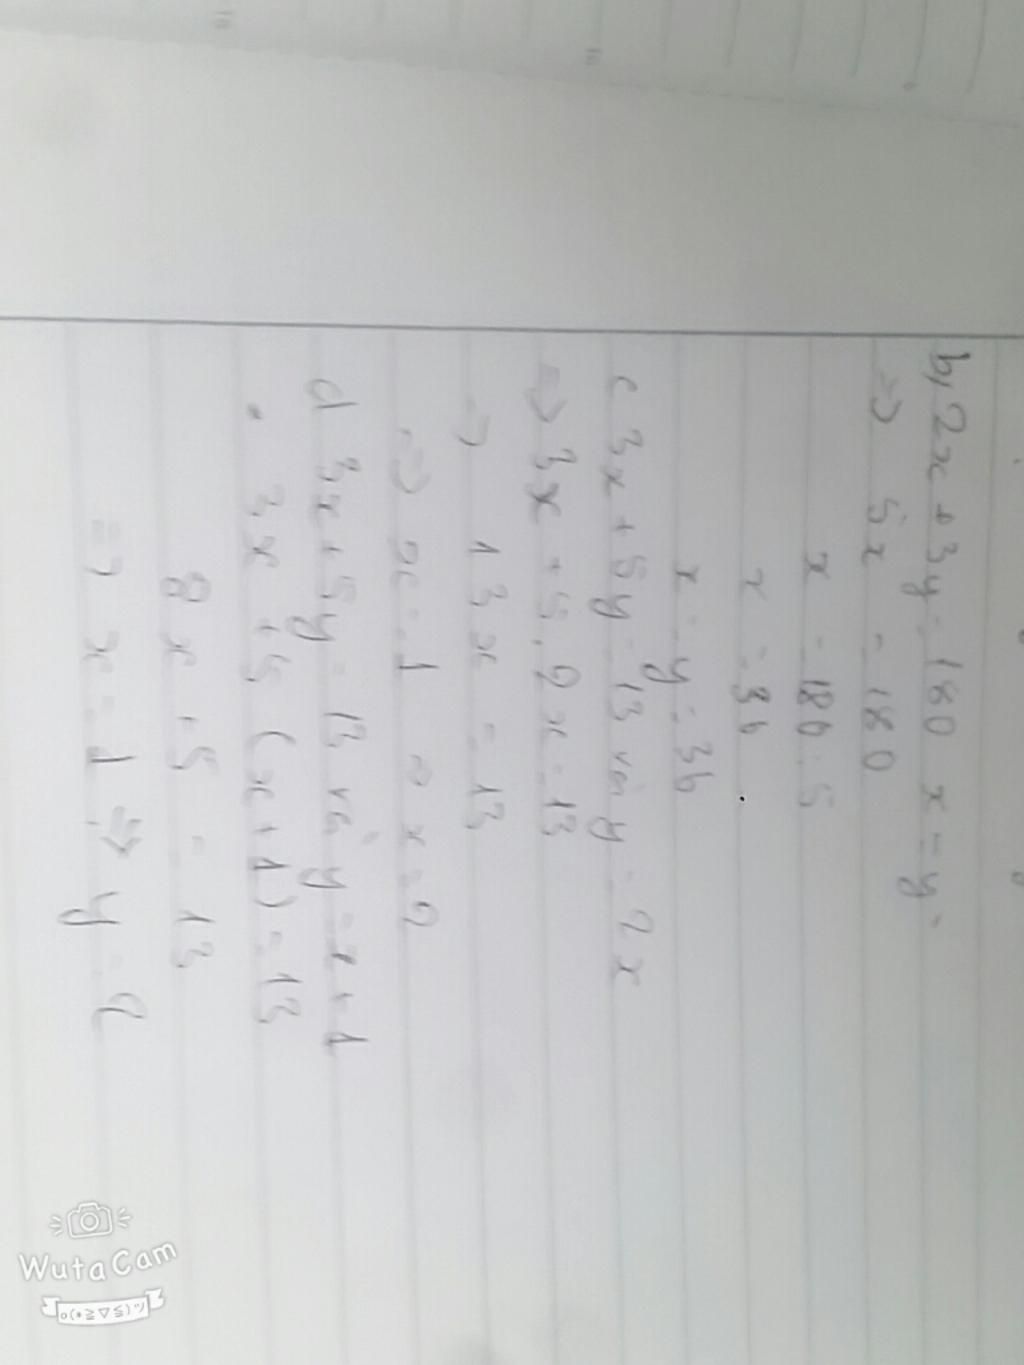 b, 2x + 3y = 180 x = y
=> 5x = 180
x = 180 : 5
x = 36
x = y = 36
c 3x + 5y = 13 và y = 2x
=> 3x + 5.2x = 13
=> 13x = 13
=> x = 1 => x = 2
d 3x + 5y = 13 và y = x + 1
3x + 5 (x + 1) = 13
8x + 5 = 13
=> x = 1 => y = 2
WutaCam
o(*≧▽≦)ツ